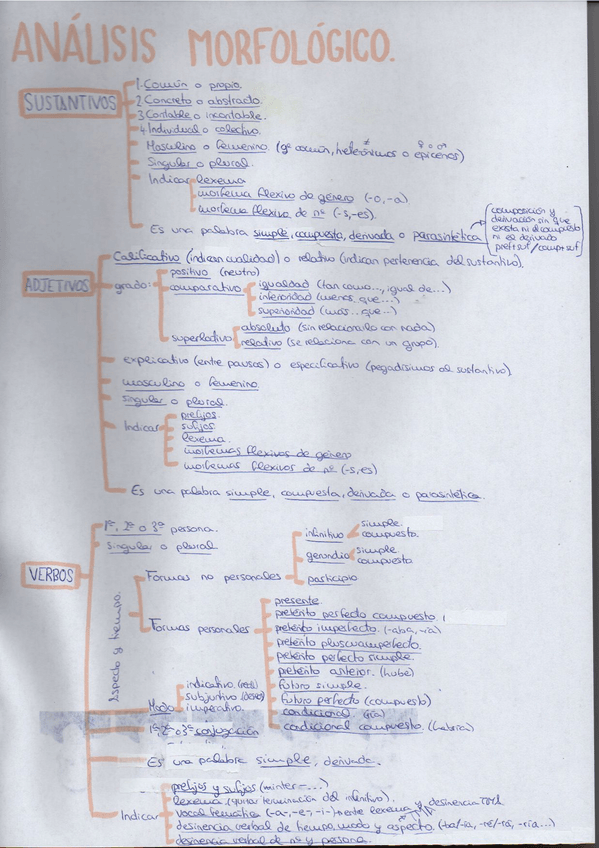 ANÁLISIS MORFOLÓGICO.
SUSTANTIVOS
1. Común o propio.
2. Concreto o abstracto.
3. Contable o incontable.
4. Individual o colectivo.
Masculino o femenino. (gº común, heterónimos ≠ o epicenos ♀=♂)
Singular o plural.
Indicar lexema
morfema flexivo de género (-o, -a)
morfema flexivo de nº (-s, -es).
Es una palabra simple, compuesta, derivada o parasintética
composición y
derivación sin que
exista ni el compuesto
ni el derivado
pref+suf / comp+suf
ADJETIVOS
Calificativo (indican cualidad) o relativo (indican pertenencia del sustantivo).
grado:
positivo (neutro)
comparativo
igualdad (tan como..., igual de...)
inferioridad (menos que...)
superioridad (más...que...)
superlativo
absoluto (sin relacionarlo con nada)
relativo (se relaciona con un grupo).
explicativo (entre pausas) o especificativo (pegadísimos al sustantivo).
masculino o femenino.
singular o plural.
Indicar
prefijos.
sufijos.
lexema.
morfemas flexivos de género
morfemas flexivos de nº (-s, es)
Es una palabra simple, compuesta, derivada o parasintética.
VERBOS
1ª, 2ª o 3ª persona.
Singular o plural
Aspecto y tiempo.
Formas no personales
infinitivo
simple.
compuesta.
gerundio
simple
compuesta
participio
Formas personales
presente
pretérito perfecto compuesto.
pretérito imperfecto. (-aba, -ía)
pretérito pluscuamperfecto.
pretérito perfecto simple.
pretérito anterior. (hube)
futuro simple.
futuro perfecto (compuesto)
condicional (ría)
condicional compuesto. (habría)
Modo
indicativo. (real)
subjuntivo (deseo)
imperativo.
1ª 2ª o 3ª conjugación
Es una palabra simple, derivada.
Indicar
prefijos y sufijos
lexema (quitar terminación del infinitivo).
vocal temática (-a-, -e-, -i-) entre lexema y desinencia TMA
desinencia verbal de tiempo, modo y aspecto. (-ba/-ía, -ré/-rá, -ría...)
desinencia verbal de nº y persona.